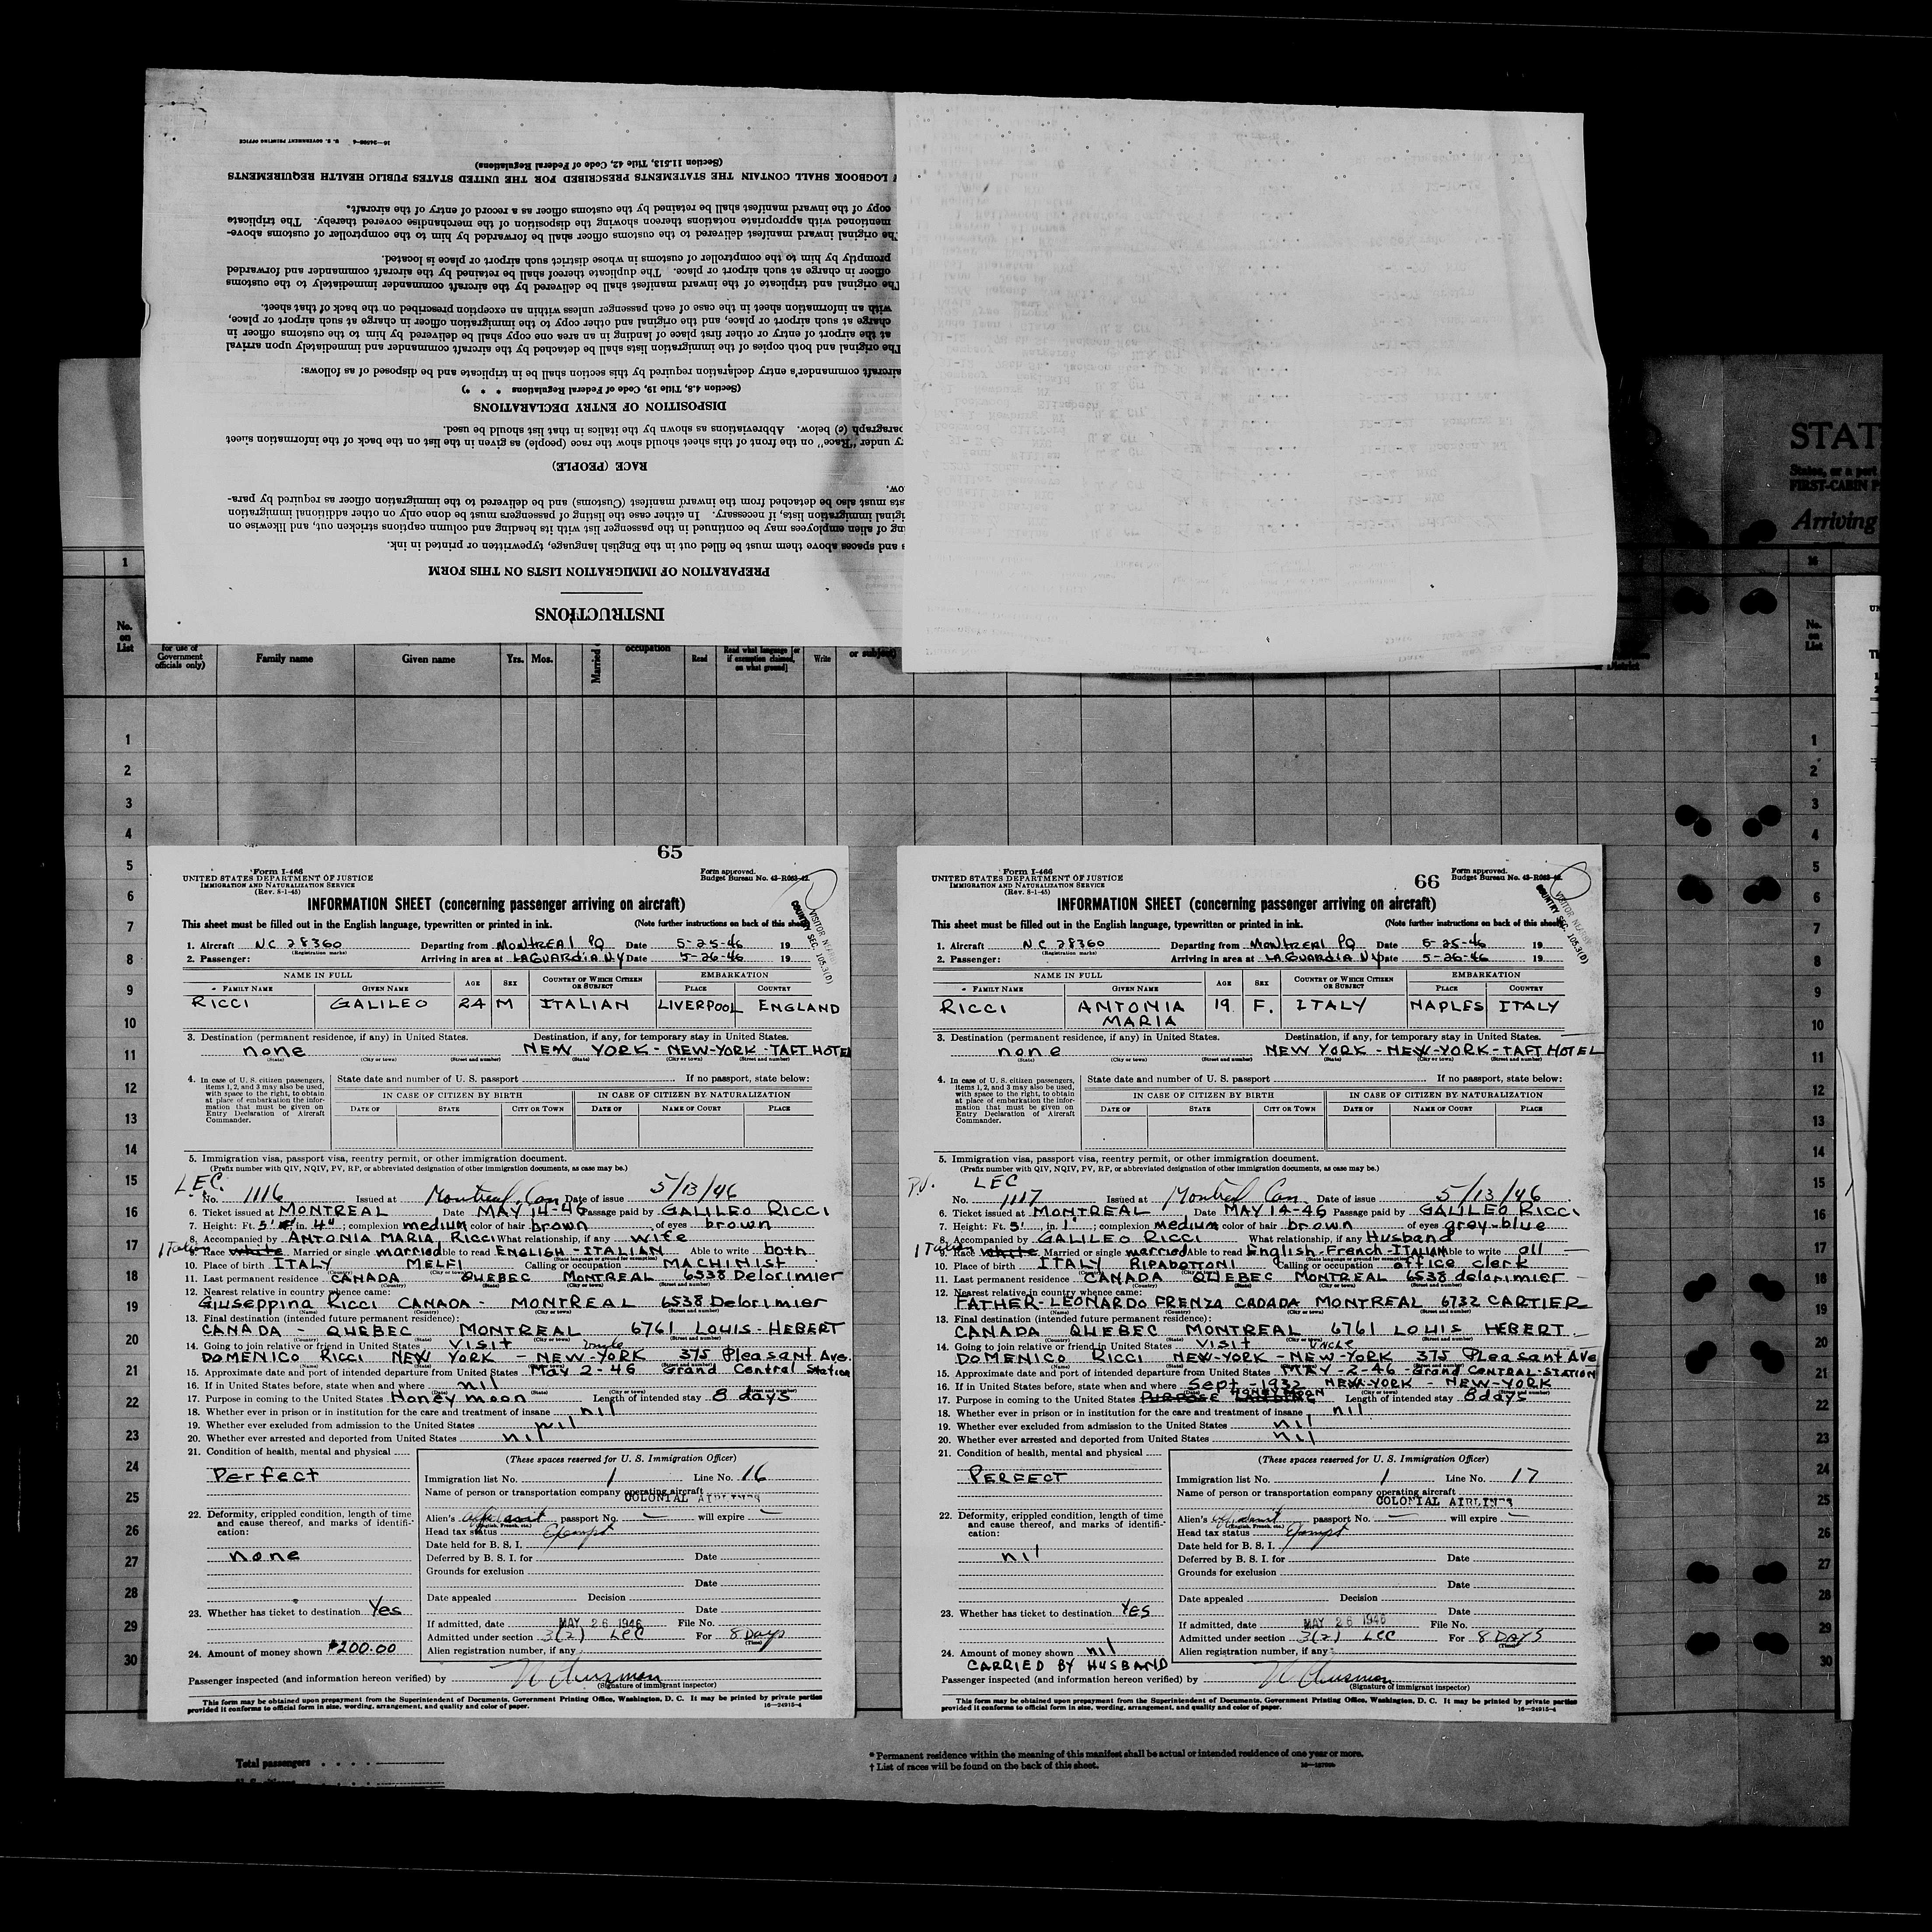 INSTRUCTIONS
PREPARATION OF IMMIGRATION LISTS ON THIS FORM
s and spaces above them must be filled out in the English language, typewritten or printed in ink.
ng of alien employees may be continued in the passenger list with its heading and column captions stricken out, and likewise on
ginal immigration lists, if necessary. In either case the listing of passengers must be done only on other additional immigration
sts must also be detached from the inward manifest (Customs) and be delivered to the immigration officer as required by para-
ow.
RACE (PEOPLE)
ry under "Race" on the front of this sheet should show the race (people) as given in the list on the back of the information sheet
paragraph (c) below. Abbreviations as shown by the italics in that list should be used.
DISPOSITION OF ENTRY DECLARATIONS
(Section 4.8, Title 19, Code of Federal Regulations * * *)
aircraft commander's entry declaration required by this section shall be in triplicate and be disposed of as follows:
The original and both copies of the immigration lists shall be detached by the aircraft commander and immediately upon arrival
at the airport of entry or other first place of landing in an area one copy shall be delivered by him to the customs officer in
charge at such airport or place, and the original and other copy to the immigration officer in charge at such airport or place,
with an information sheet in the case of each passenger unless within an exception prescribed on the back of that sheet.
The original and triplicate of the inward manifest shall be delivered by the aircraft commander immediately to the customs
officer in charge at such airport or place. The duplicate thereof shall be retained by the aircraft commander and forwarded
promptly by him to the comptroller of customs in whose district such airport or place is located.
The original inward manifest delivered to the customs officer shall be forwarded by him to the comptroller of customs above-
mentioned with appropriate notations thereon showing the disposition of the merchandise covered thereby. The triplicate
copy of the inward manifest shall be retained by the customs officer as a record of entry of the aircraft.
LOGBOOK SHALL CONTAIN THE STATEMENTS PRESCRIBED FOR THE UNITED STATES PUBLIC HEALTH REQUIREMENTS
(Section 11.513, Title 42, Code of Federal Regulations)
U. S. GOVERNMENT PRINTING OFFICE
STAT
States, or a port
FIRST-CABIN P
Arriving
1
No. on List
for use of Government officials only)
Family name
Given name
Yrs. Mos.
Married
occupation
Read
Read what language [or if exemption claimed, on what ground]
Write
or subject
No. on List
1
2
3
4
5
6
7
8
9
10
11
12
13
14
15
16
17
18
19
20
21
22
23
24
25
26
27
28
29
30
65
Form I-466
UNITED STATES DEPARTMENT OF JUSTICE
IMMIGRATION AND NATURALIZATION SERVICE
(Rev. 8-1-45)
Form approved.
Budget Bureau No. 43-R063-42.
INFORMATION SHEET (concerning passenger arriving on aircraft)
This sheet must be filled out in the English language, typewritten or printed in ink. (Note further instructions on back of this sheet)
1. Aircraft NC 28360 Departing from MONTREAL PQ Date 5-25-46 19
(Registration marks)
2. Passenger: Arriving in area at LAGUARDIA NY Date 5-26-46 19
NAME IN FULL AGE SEX COUNTRY OF WHICH CITIZEN OR SUBJECT EMBARKATION
FAMILY NAME GIVEN NAME PLACE COUNTRY
RICCI GALILEO 24 M ITALIAN LIVERPOOL ENGLAND
3. Destination (permanent residence, if any) in United States. Destination, if any, for temporary stay in United States.
none NEW YORK - NEW-YORK - TAFT HOTEL
(State) (City or town) (Street and number) (State) (City or town) (Street and number)
4. In case of U. S. citizen passengers, items 1, 2, and 3 may also be used, with space to the right, to obtain at place of embarkation the information that must be given on Entry Declaration of Aircraft Commander.
State date and number of U. S. passport If no passport, state below:
IN CASE OF CITIZEN BY BIRTH IN CASE OF CITIZEN BY NATURALIZATION
DATE OF STATE CITY OR TOWN DATE OF NAME OF COURT PLACE
5. Immigration visa, passport visa, reentry permit, or other immigration document.
(Prefix number with QIV, NQIV, PV, RP, or abbreviated designation of other immigration documents, as case may be.)
LEC.
No. 1116 Issued at Montreal, Can Date of issue 5/13/46
6. Ticket issued at MONTREAL Date MAY 14-46 Passage paid by GALILEO RICCI
7. Height: Ft. 5' in. 4"; complexion medium color of hair brown of eyes brown
8. Accompanied by ANTONIA MARIA RICCI What relationship, if any wife
9. Race white Married or single married able to read ENGLISH - ITALIAN Able to write both
10. Place of birth ITALY MELFI Calling or occupation MACHINIST
11. Last permanent residence CANADA QUEBEC MONTREAL 6538 Delorimier
12. Nearest relative in country whence came:
Giuseppina Ricci CANADA - MONTREAL 6538 Delorimier
13. Final destination (intended future permanent residence):
CANADA - QUEBEC MONTREAL 6761 LOUIS-HEBERT
14. Going to join relative or friend in United States Visit uncle
DOMENICO RICCI NEW YORK - NEW-YORK 375 Pleasant Ave.
15. Approximate date and port of intended departure from United States May 2-46 Grand Central Station
16. If in United States before, state when and where nil
17. Purpose in coming to the United States Honey moon Length of intended stay 8 days
18. Whether ever in prison or in institution for the care and treatment of insane nil
19. Whether ever excluded from admission to the United States nil
20. Whether ever arrested and deported from United States nil
21. Condition of health, mental and physical
Perfect
22. Deformity, crippled condition, length of time and cause thereof, and marks of identification:
none
23. Whether has ticket to destination Yes
24. Amount of money shown $200.00
(These spaces reserved for U. S. Immigration Officer)
Immigration list No. 1 Line No. 16
Name of person or transportation company operating aircraft
COLONIAL AIRLINES
Alien's affidavit passport No. — will expire —
(English, French, etc.)
Head tax status Exempt
Date held for B. S. I.
Deferred by B. S. I. for Date
Grounds for exclusion
Date
Date appealed Decision
Date
If admitted, date MAY 26 1946 File No.
Admitted under section 3(2) LEC For 8 Days
(Time)
Alien registration number, if any
Passenger inspected (and information hereon verified) by
(Signature of immigrant inspector)
This form may be obtained upon prepayment from the Superintendent of Documents, Government Printing Office, Washington, D. C. It may be printed by private parties
provided it conforms to official form in size, wording, arrangement, and quality and color of paper. 16—24915-4
66
Form I-466
UNITED STATES DEPARTMENT OF JUSTICE
IMMIGRATION AND NATURALIZATION SERVICE
(Rev. 8-1-45)
Form approved.
Budget Bureau No. 43-R063-42.
INFORMATION SHEET (concerning passenger arriving on aircraft)
This sheet must be filled out in the English language, typewritten or printed in ink. (Note further instructions on back of this sheet)
1. Aircraft NC 28360 Departing from MONTREAL PQ Date 5-25-46 19
(Registration marks)
2. Passenger: Arriving in area at LAGUARDIA NY Date 5-26-46 19
NAME IN FULL AGE SEX COUNTRY OF WHICH CITIZEN OR SUBJECT EMBARKATION
FAMILY NAME GIVEN NAME PLACE COUNTRY
RICCI ANTONIA MARIA 19 F. ITALY NAPLES ITALY
3. Destination (permanent residence, if any) in United States. Destination, if any, for temporary stay in United States.
none NEW YORK - NEW-YORK - TAFT HOTEL
(State) (City or town) (Street and number) (State) (City or town) (Street and number)
4. In case of U. S. citizen passengers, items 1, 2, and 3 may also be used, with space to the right, to obtain at place of embarkation the information that must be given on Entry Declaration of Aircraft Commander.
State date and number of U. S. passport If no passport, state below:
IN CASE OF CITIZEN BY BIRTH IN CASE OF CITIZEN BY NATURALIZATION
DATE OF STATE CITY OR TOWN DATE OF NAME OF COURT PLACE
5. Immigration visa, passport visa, reentry permit, or other immigration document.
(Prefix number with QIV, NQIV, PV, RP, or abbreviated designation of other immigration documents, as case may be.)
P.V. LEC
No. 1117 Issued at Montreal Can. Date of issue 5/13/46
6. Ticket issued at MONTREAL Date MAY 14-46 Passage paid by GALILEO RICCI
7. Height: Ft. 5' in. 1"; complexion medium color of hair brown of eyes grey-blue
8. Accompanied by GALILEO RICCI What relationship, if any Husband
9. Race white Married or single married able to read English-French-ITALIAN Able to write all
10. Place of birth ITALY RIPABOTTONI Calling or occupation office clerk
11. Last permanent residence CANADA QUEBEC MONTREAL 6538 delorimier
12. Nearest relative in country whence came:
FATHER-LEONARDO FRENZA CADADA MONTREAL 6732 CARTIER
13. Final destination (intended future permanent residence):
CANADA QUEBEC MONTREAL 6761 LOUIS HEBERT
14. Going to join relative or friend in United States Visit UNCLE
DOMENICO RICCI NEW-YORK - NEW-YORK 375 PLeasant Ave
15. Approximate date and port of intended departure from United States MAY-2-46 - Grand CENTRAL-STATION
16. If in United States before, state when and where Sept - 1932 NEW-YORK - NEW-YORK
17. Purpose in coming to the United States HONEYMOON Length of intended stay 8 days
18. Whether ever in prison or in institution for the care and treatment of insane nil
19. Whether ever excluded from admission to the United States nil
20. Whether ever arrested and deported from United States nil
21. Condition of health, mental and physical
PERFECT
22. Deformity, crippled condition, length of time and cause thereof, and marks of identification:
nil
23. Whether has ticket to destination YES
24. Amount of money shown nil
CARRIED BY HUSBAND
(These spaces reserved for U. S. Immigration Officer)
Immigration list No. 1 Line No. 17
Name of person or transportation company operating aircraft
COLONIAL AIRLINES
Alien's affidavit passport No. — will expire —
(English, French, etc.)
Head tax status Exempt
Date held for B. S. I.
Deferred by B. S. I. for Date
Grounds for exclusion
Date
Date appealed Decision
Date
If admitted, date MAY 26 1946 File No.
Admitted under section 3(2) LEC For 8 DAYS
(Time)
Alien registration number, if any
Passenger inspected (and information hereon verified) by
(Signature of immigrant inspector)
This form may be obtained upon prepayment from the Superintendent of Documents, Government Printing Office, Washington, D. C. It may be printed by private parties
provided it conforms to official form in size, wording, arrangement, and quality and color of paper. 16—24915-4
Total passengers
* Permanent residence within the meaning of this manifest shall be actual or intended residence of one year or more.
† List of races will be found on the back of this sheet.